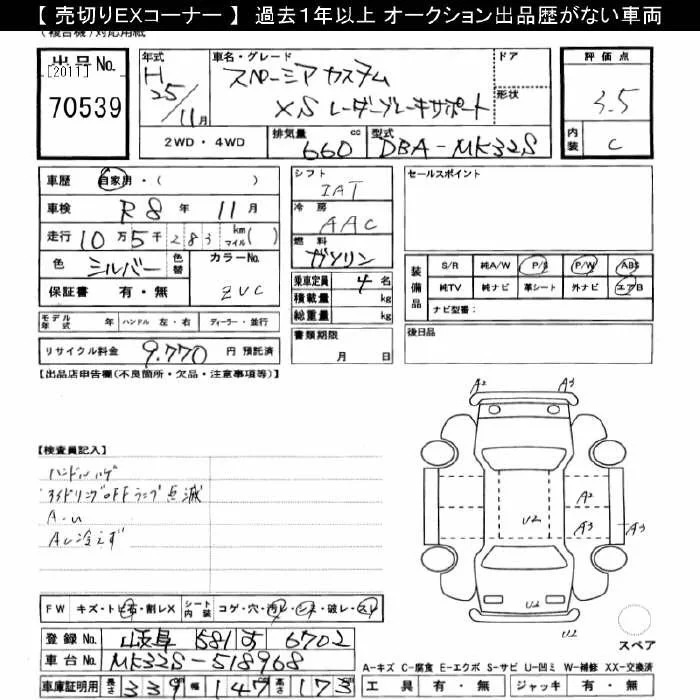 【 売切りEXコーナー 】 過去1年以上 オークション出品歴がない車両
(複合機)対応用紙
出品 No.
[2011]
70539
年式 H 25/11月
車名・グレード
スペーシア カスタム
XS レーダーブレーキサポート
ドア
形状
評価点
3.5
内装 C
2WD・4WD
排気量 660 cc
型式 DBA-MK32S
車歴 自家用・( )
車検 R8年 11月
走行 10万5千283 km マイル( )
色 シルバー 色替
カラーNo. ZVC
保証書 有・無
シフト IAT
冷房 AAC
燃料 ガソリン
乗車定員 4 名
積載量 kg
総重量 kg
セールスポイント
装備品
S/R 純A/W P/S P/W ABS
純TV 純ナビ 革シート 外ナビ エアB
ナビ型番:
モデル年式 年 ハンドル 左・右 ディーラー・並行
リサイクル料金 9.770 円 預託済
書類期限 月 日
後日品
【出品店申告欄(不良箇所・欠品・注意事項等)】
【検査員記入】
ハンドルハゲ
ランプ点滅
A-U
AC冷えず
A2 A3
A2
U2 A3 A3
U2
U2
FW キズ・トビ石・割レX シート内装 コゲ・穴・汚レ・シミ・破レ・スレ
登録 No. 岐阜 581 す 6702
車台 No. MK32S-518968
車庫証明用 長さ 339 幅 147 高さ 173
スペア
A-キズ C-腐食 E-エクボ S-サビ U-凹ミ W-補修 XX-交換済
工具 有・無 ジャッキ 有・無